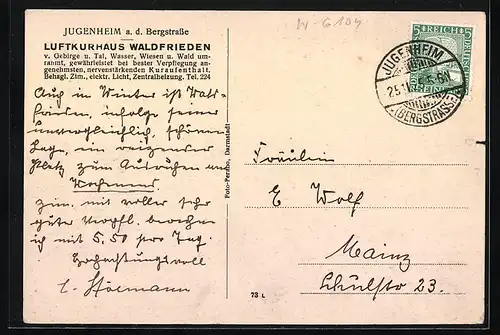 JUGENHEIM a. d. Bergstraße
LUFTKURHAUS WALDFRIEDEN
v. Gebirge u. Tal, Wasser, Wiesen u. Wald um-
rahmt, gewährleistet bei bester Verpflegung an-
genehmsten, nervenstärkenden Kuraufenthalt
Behagl. Zim., elektr. Licht, Zentralheizung. Tel. 224
Auch im Winter ist Wald-
frieden, infolge seiner
unvergleichlich schönen
Lage, ein reizender
Platz zum Ausruhen und
Zim. mit voller sehr
guter Verpfl. berechne
ich mit 5,50 pro Tag.
Hochachtungsvoll
Foto-Perabo, Darmstadt
W-6104
5 REICH 5
JUGENHEIM
(BERGSTRASSE)
Fräulein
E Wolf
Mainz
Schulstr 23.
73 L